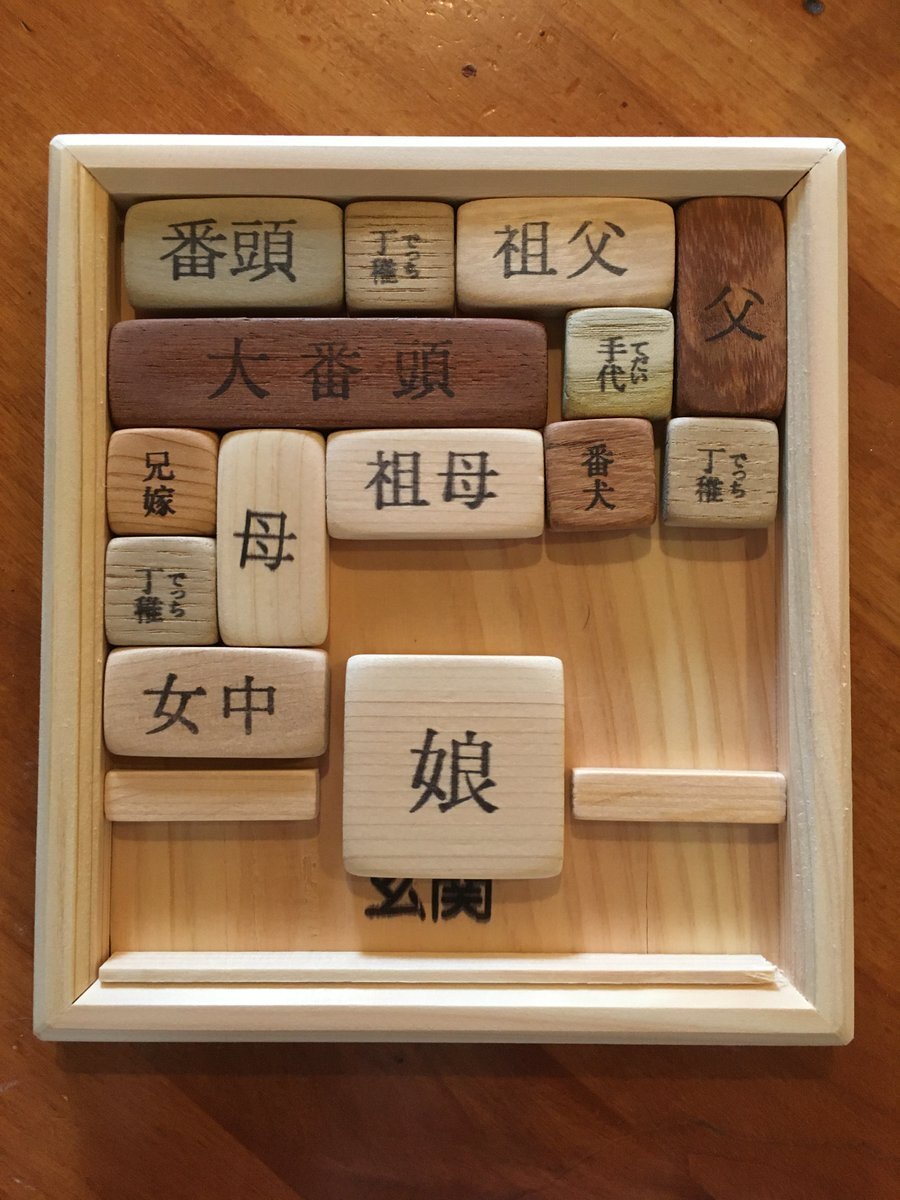 番頭
丁稚 でっち
祖父
父
大番頭
手代 てだい
兄嫁
母
祖母
番犬
丁稚 でっち
丁稚 でっち
女中
娘
玄関